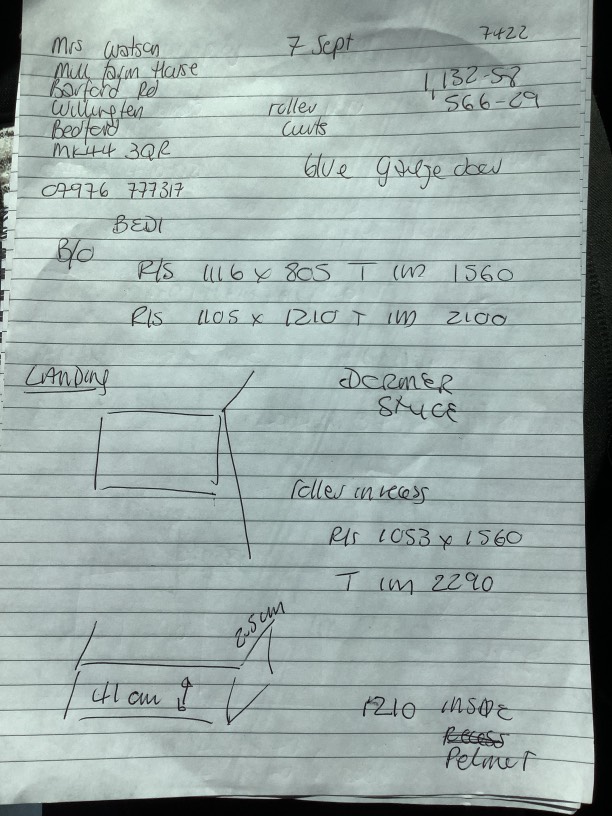 Mrs Watson
7 Sept
7422
Mill farm House
Barford Rd
1,132-58
Willington
566-29
roller
Bedford
Curts
MK44 3QR
blue garage door
07976 777317
BED1
B/O
R/S 1116 x 805 T 1m 1560
R/S 1105 x 1210 T 1m 2100
LANDing
DORMER
roller in recess
R/S 1053 x 1560
T 1m 2290
2.5cm
41cm
1210 INSIDE
Recess
Pelmet